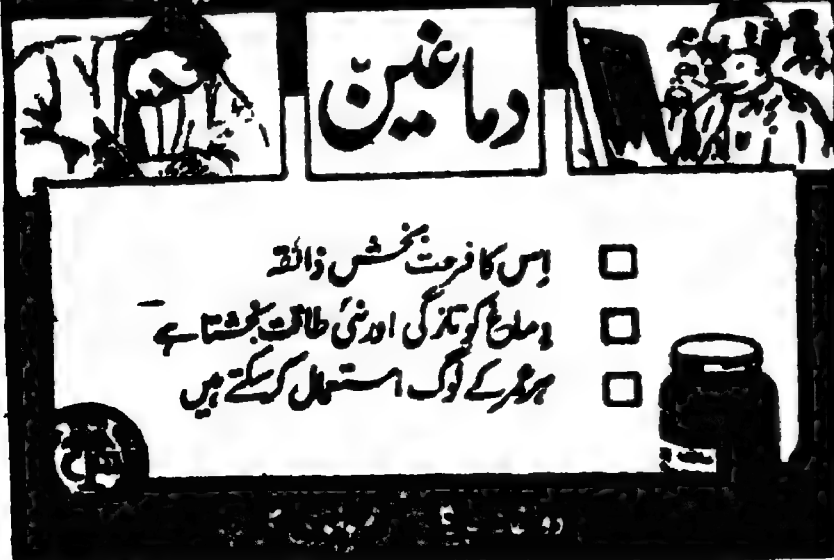 دماغین
اِس کا فرحت بخش ذائقہ
دماغ کو تازگی اور نئی طاقت بخشتا ہے۔
ہر عمر کے لوگ استعمال کرسکتے ہیں